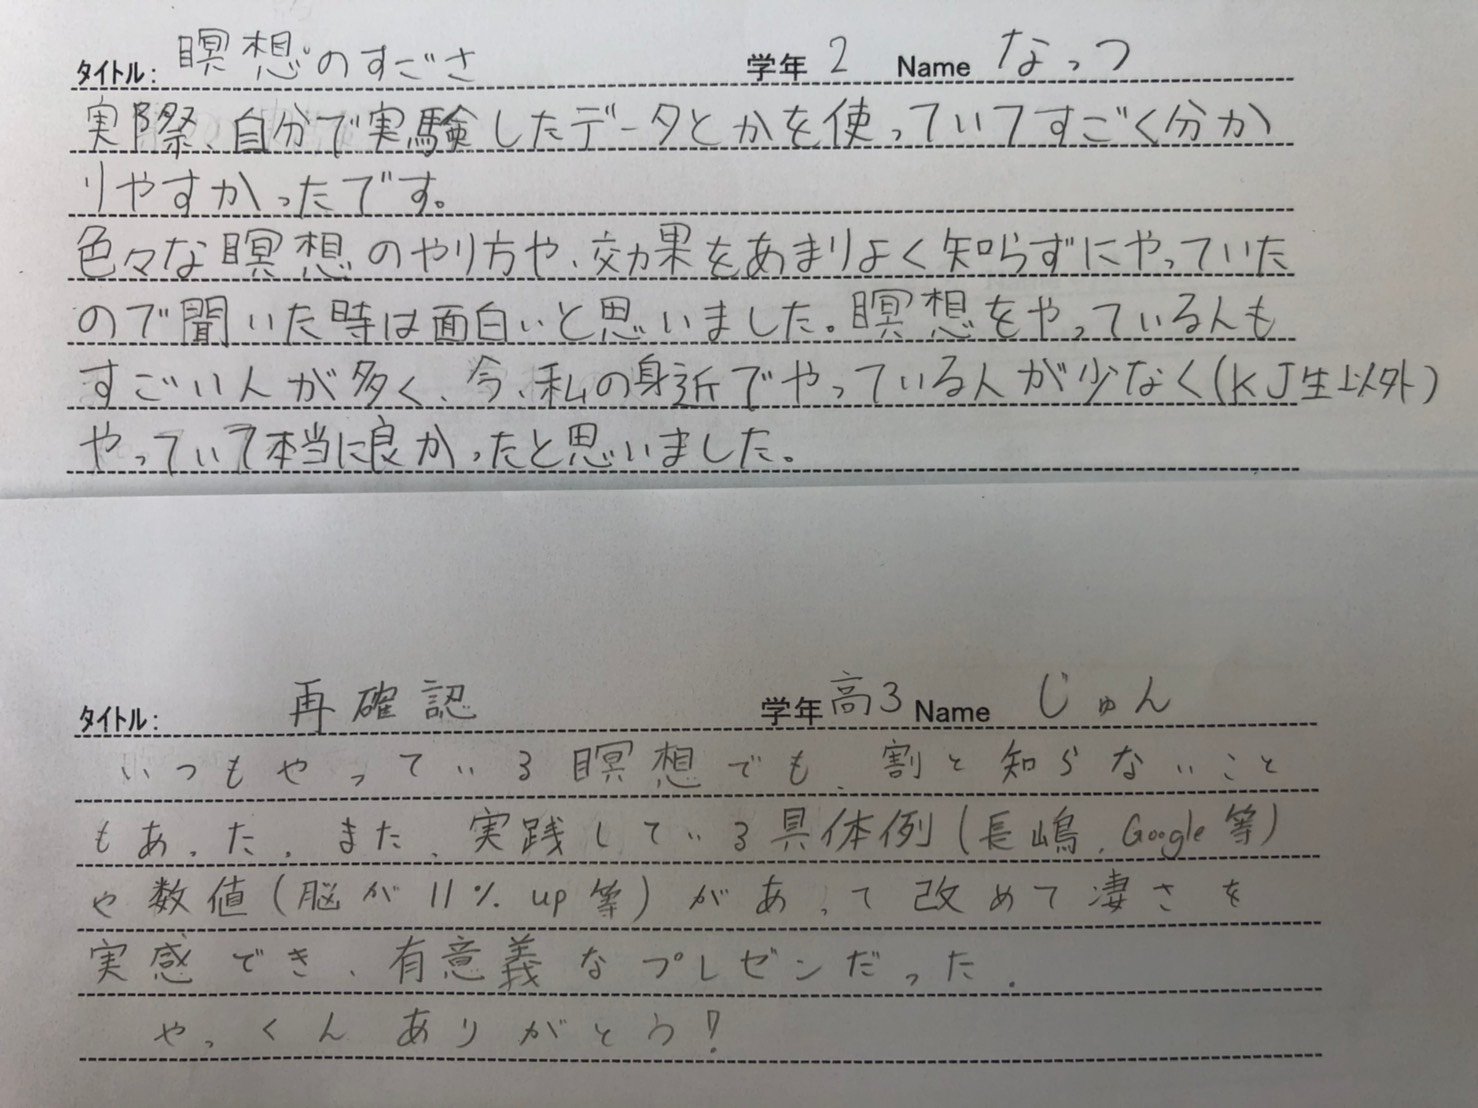 タイトル: 瞑想のすごさ 学年 2 Name なっつ
実際、自分で実験したデータとかを使っていてすごく分か
りやすかったです。
色々な瞑想のやり方や、効果をあまりよく知らずにやっていた
ので聞いた時は面白いと思いました。瞑想をやっている人も
すごい人が多く、今、私の身近でやっている人が少なく(KJ生以外)
やっていて本当に良かったと思いました。
タイトル: 再確認 学年 高3 Name じゅん
いつもやっている瞑想でも、割と知らないこと
もあった。また、実践している具体例(長嶋、Google等)
や数値(脳が11% up等)があって改めて凄さを
実感でき、有意義なプレゼンだった.
やっくんありがとう!